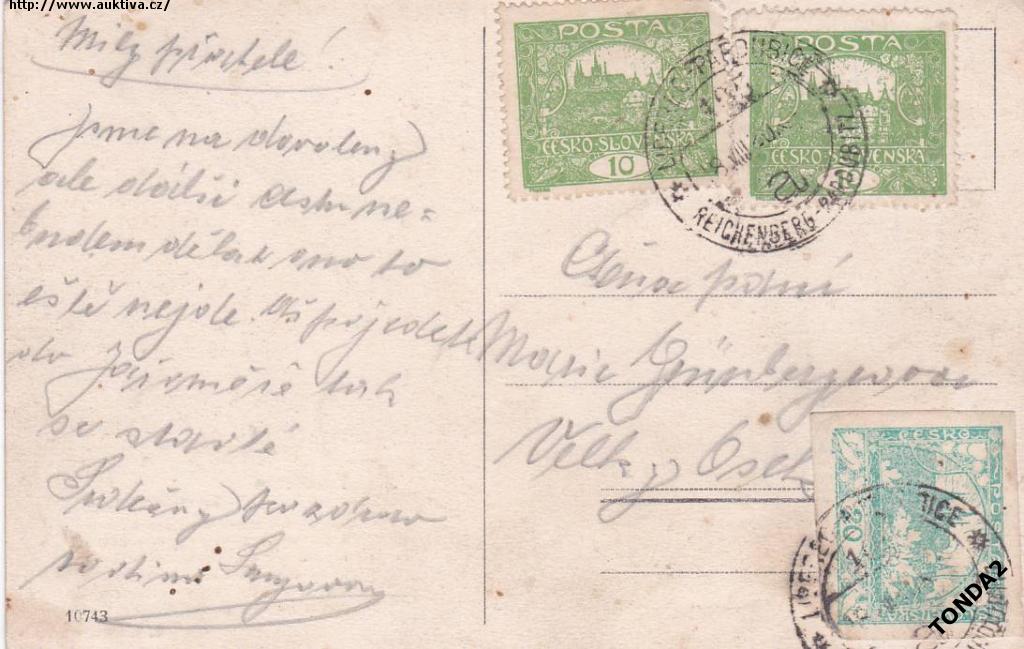 http://www.auktiva.cz/
Milý přátelé!
Jsme na dovolený
ale další cestu ne=
budem dělat ono to
eště nejde. Až pojedete
do Jaroměře tak
se stavte
Srdečný pozdrav
rodina
10743
POSTA
ČESKO-SLOVENSKÁ
10
POSTA
ČESKO-SLOVENSKÁ
LIBEREC-PARDUBICE
REICHENBERG-PARDUBITZ
Ctěná paní
Marie Grünbergerova
Velký Osek
ČESKO
20
TONDA2